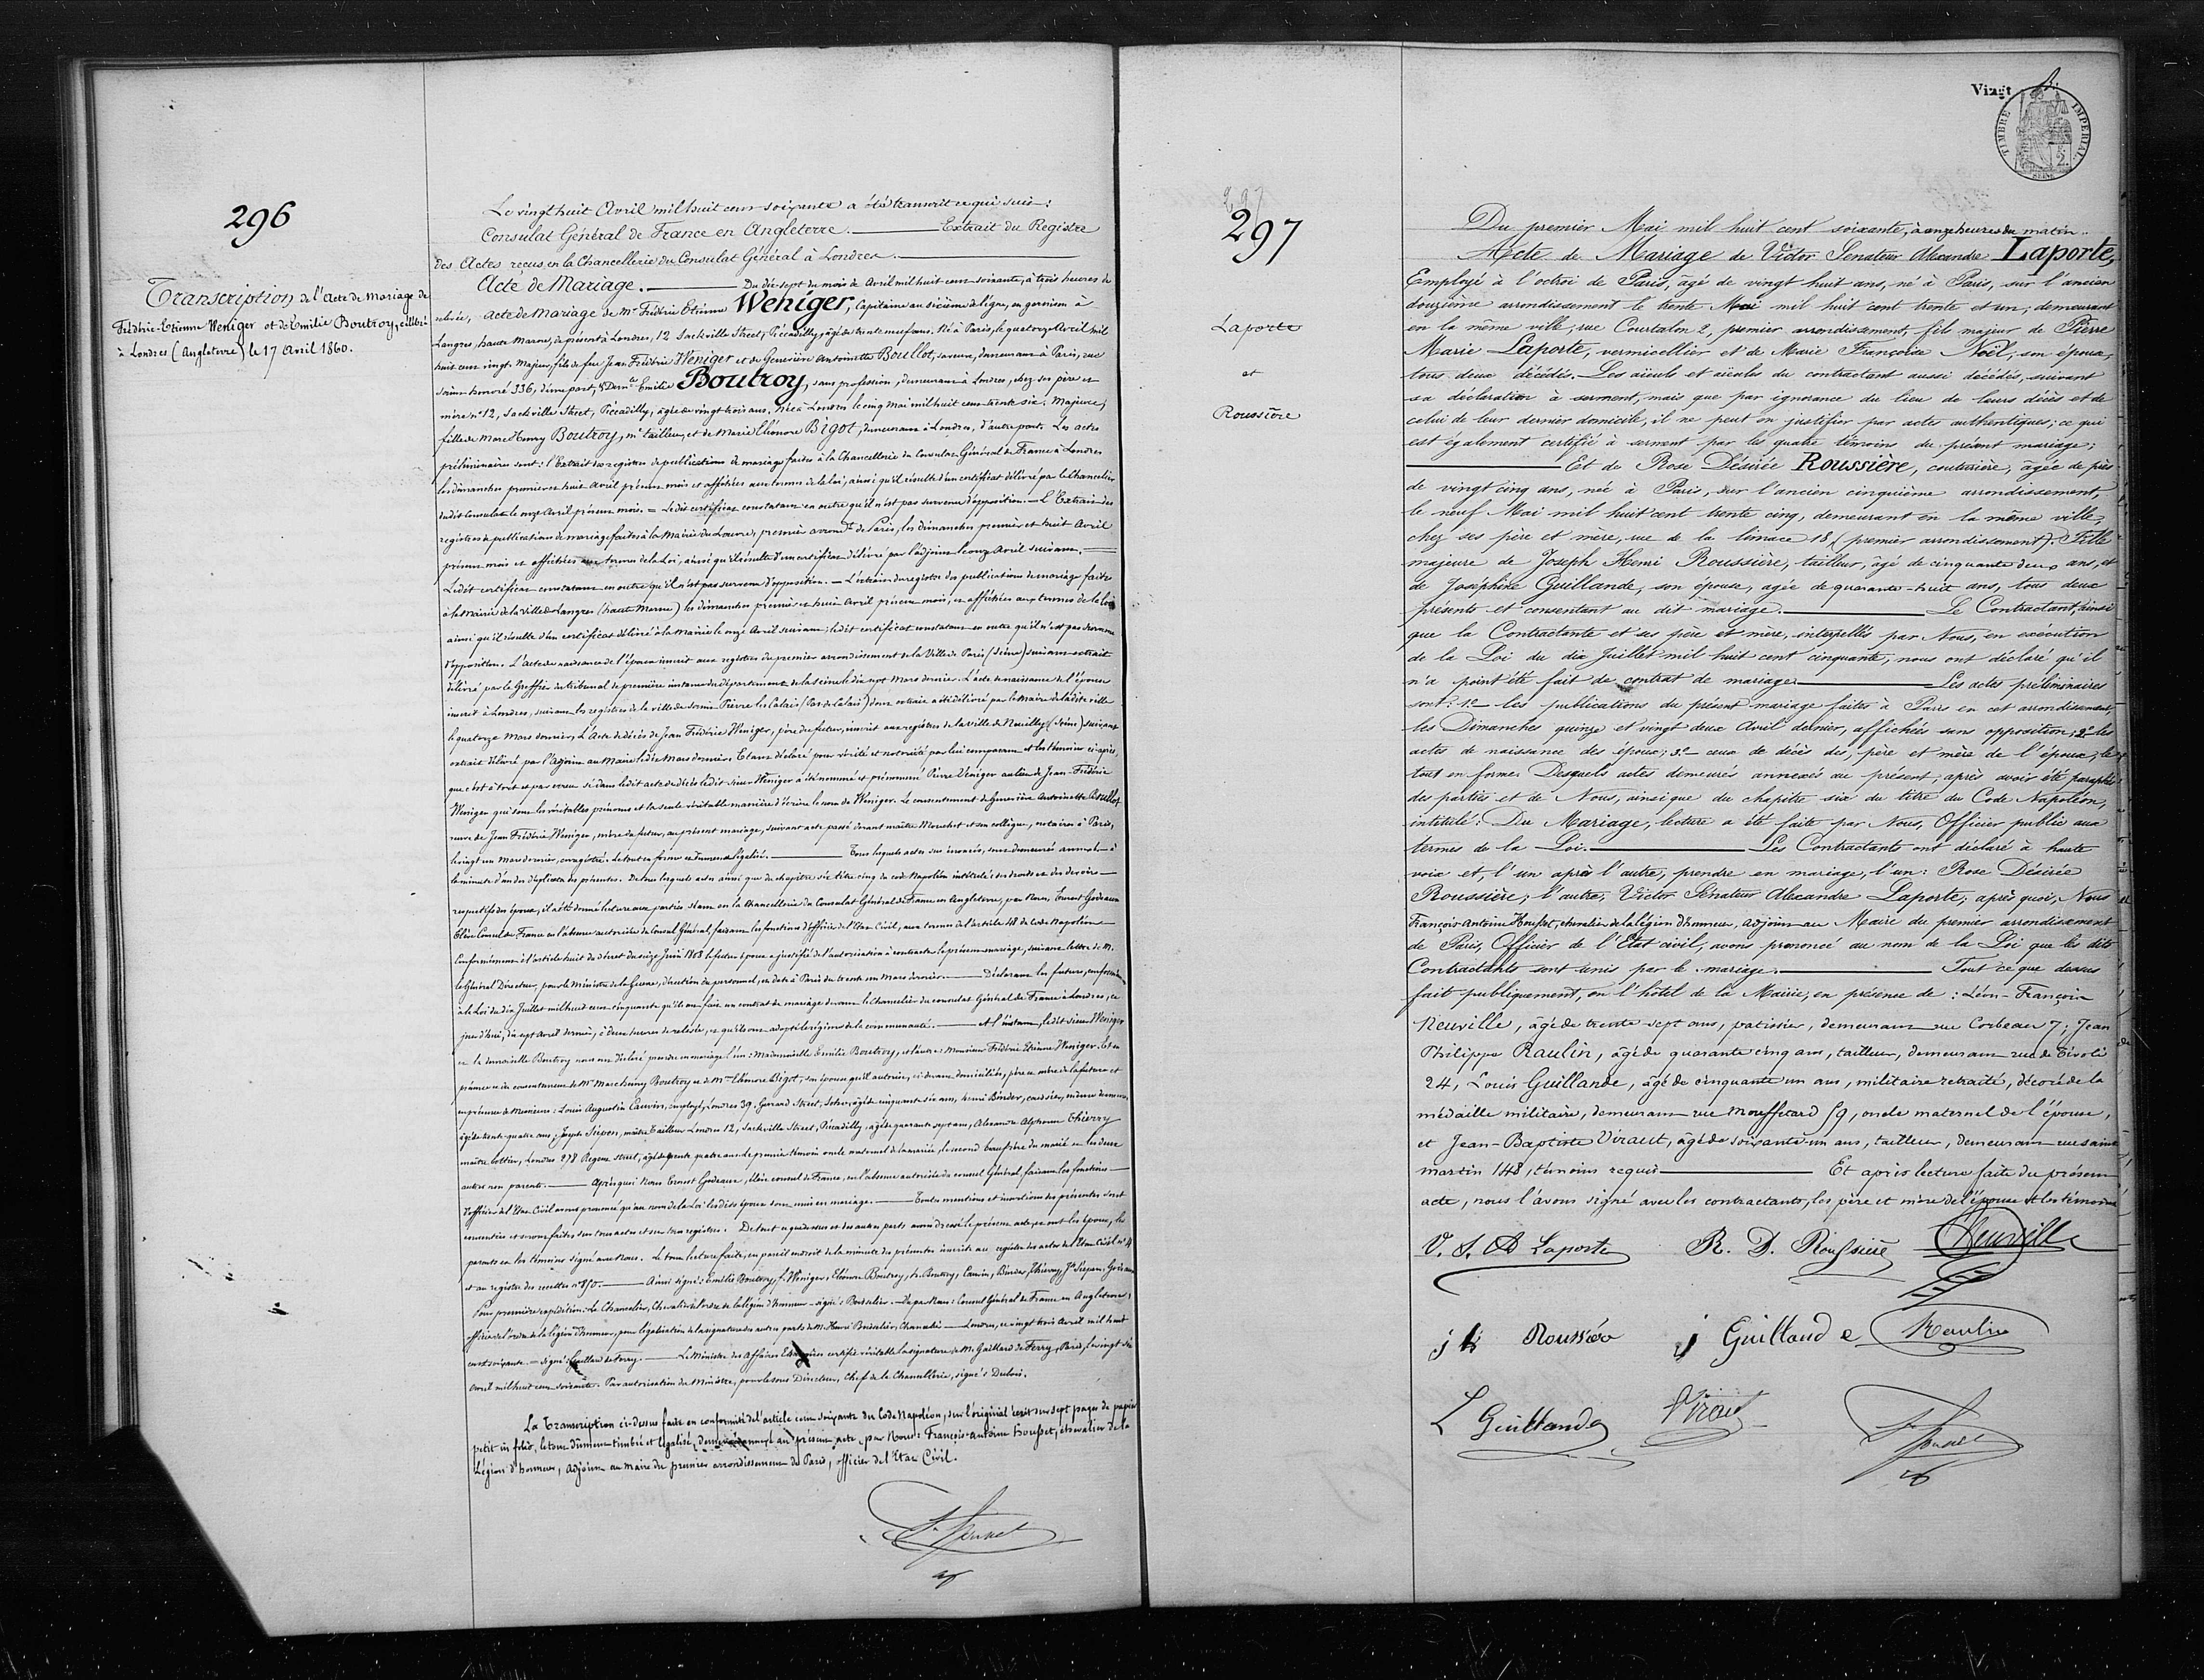 296
Transcription de l'Acte de Mariage de
Frédéric-Etienne Weniger et de Emilie Boutroy, célébré
à Londres (Angleterre) le 17 Avril 1860.
Le vingt huit Avril mil huit cent soixante a été transcrit ce qui suit:
Consulat Général de France en Angleterre. Extrait du Registre
des Actes reçus en la Chancellerie du Consulat Général à Londres.
Acte de Mariage. Du dix-sept du mois de Avril mil huit cent soixante, à trois heures de
relevée, acte de Mariage de Mr Frédéric Etienne Weniger, Capitaine au sixième de ligne, en garnison à
Langres, haute Marne, de présent à Londres, 12 Sackville Street, Piccadilly, âgé de trente neuf ans. Né à Paris, le quatorze Avril mil
huit cent vingt. Majeur, fils de feu Jean Frédéric Weniger et de Geneviève Antoinette Boullot, sa veuve, demeurant à Paris, rue
saint honoré 336, d'une part, & Demlle Emilie Boutroy, sans profession, demeurant à Londres, chez ses père et
mère no 12, Sackville Street, Piccadilly, âgée de vingt trois ans, née à Londres le cinq Mai mil huit cent trente six. Majeure,
fille de Marc Henry Boutroy, md tailleur, et de Marie Eléonore Bigot, demeurant à Londres, d'autre part. Les actes
préliminaires sont: l'Extrait des registres de publications de mariage faites à la Chancellerie du Consulat Général de France à Londres
les dimanches premier et huit Avril présent mois et affichées aux termes de la loi, ainsi qu'il résulte d'un certificat délivré par le Chancelier
dudit Consulat le onze Avril présent mois. = Ledit certificat constatant en outre qu'il n'est pas survenu d'opposition. — L'Extrait des
registres de publication de mariage faites à la Mairie du Louvre, premier arrondt de Paris, les dimanches premier et huit Avril
présent mois et affichées aux termes de la Loi, ainsi qu'il résulte d'un certificat délivré par l'adjoint le onze Avril suivant.
Ledit certificat constatant en outre qu'il n'est pas survenu d'opposition. — L'extrait du registre des publications de mariage faites
à la Mairie de la ville de Langres (haute Marne) les dimanches premier et huit Avril présent mois, et affichées aux termes de la loi
ainsi qu'il résulte d'un certificat délivré à la Mairie le onze Avril suivant; ledit certificat constatant en outre qu'il n'est pas survenu
d'opposition. L'acte de naissance de l'époux inscrit aux registres du premier arrondissement de la Ville de Paris (Seine) suivant extrait
délivré par le Greffier du tribunal de première instance du département de la Seine le dix sept Mars dernier. L'acte de naissance de l'épouse
inscrit à Londres, suivant les registres de la ville de Saint-Pierre les Calais (Pas de Calais) dont extrait a été délivré par le Maire de ladite ville
le quatorze Mars dernier, L'Acte de décès de Jean Frédéric Weniger, père du futur, inscrit aux registres de la ville de Neuilly (Seine) suivant
extrait délivré par l'Adjoint au Maire le dix Mars dernier. Etant déclaré pour vérité et notoriété par lui comparant et les témoins ci-après,
que c'est à tort et par erreur si dans ledit acte de décès ledit sieur Weniger a été nommé et prénommé Pierre Veniger au lieu de Jean-Frédéric
Weniger qui sont les véritables prénoms et la seule véritable manière d'écrire le nom de Weniger. Le consentement de Geneviève Antoinette Boullot
veuve de Jean Frédéric Weniger, mère du futur, au présent mariage, suivant acte passé devant maître Morechet et son collègue, notaires à Paris,
le vingt un Mars dernier, enregistré. Le tout en forme et dument légalisé. Tous lesquels actes sus énoncés, sont demeurés annexés à
la minute d'un des duplicata des présentes. De tous lesquels actes ainsi que du chapitre six titre cinq du code Napoléon intitulé: des droits et des devoirs
respectifs des époux, il a été donné lecture aux parties étant en la chancellerie du Consulat Général de France en Angleterre, par Nous, Ernest Godeaux
Elève Consul de France en l'absence autorisée du Consul Général, faisant les fonctions d'officier de l'Etat Civil, aux termes de l'article 48 du Code Napoléon
Conformément à l'article huit du décret du seize Juin 1808 le futur époux a justifié de l'autorisation à contracter le présent mariage, suivant lettre de M.
le Général Directeur, pour le Ministre de la Guerre, direction du personnel, en date à Paris du trente un Mars dernier. Déclarant les futurs, conformément
à la Loi du dix Juillet mil huit cent cinquante qu'ils ont fait un contrat de mariage devant le Chancelier du consulat Général de France à Londres, ce
jour d'hui, dix sept Avril dernier, à deux heures de relevée, et qu'ils ont adopté le régime de la communauté. A l'instant, ledit sieur Weniger
et la demoiselle Boutroy nous ont déclaré prendre en mariage l'un: Mademoiselle Emilie Boutroy, et l'autre: Monsieur Frédéric Etienne Weniger. Et en
présence et du consentement de Mr Marc henry Boutroy et de Mme Eléonore Bigot, son épouse qu'il autorise, ci devant domiciliés, père et mère de la future et
en présence de Messieurs: Louis Augustin Cauvin, employé, Londres 39, Gerrard Street, Soho, âgé de cinquante six ans, henri Binder,
âgé de trente quatre ans, Joseph Siepen, maître tailleur Londres 12, Sackville Street, Piccadilly, âgé de quarante sept ans, Alexandre Alphonse Thierry
maître bottier, Londres 278 Regent street, âgé de trente quatre ans le premier témoin oncle maternel de la mariée, le second beau frère du marié et les deux
autres non parents. Après quoi Nous Ernest Godeaux, élève consul de France, en l'absence autorisée du consul Général, faisant les fonctions
d'officier de l'Etat Civil avons prononcé qu'au nom de la Loi les dits époux sont unis en mariage. Toutes mentions et insertions des présentes sont
consenties et seront faites sur tous actes et sur tous registres. De tout ce que dessus et des autres parts avons dressé le présent acte, et ont les époux, les
parents et les témoins signé avec Nous. Le tout lecture faite, en pareil endroit de la minute des présentes inscrite au registre des actes de l'Etat Civil no 4
et au registre des recettes no 850. Ainsi signé: Emilie Boutroy, f. Weniger, Eléonore Boutroy, h. Boutroy, Cauvin, Binder, Thierry, Jh Siepen, Godeaux
Pour première expédition: Le Chancelier, Chevalier de l'ordre de la légion d'honneur signé: Boisselier. Vu par Nous: Consul Général de France en Angleterre,
officier de l'ordre de la légion d'honneur, pour légalisation de la signature des autres parts de M. Henri Boisselier, Chancelier Londres, ce vingt trois Avril mil huit
cent soixante. = Signé: Gaillard de Ferry. Le Ministre des Affaires Etrangères certifie véritable la signature de M. Gaillard de Ferry, Paris, le vingt six
Avril mil huit cent soixante. Par autorisation du Ministre, pour le sous Directeur, Chef de la Chancellerie, signé: Dubois.
La Transcription ci-dessus faite en conformité de l'article cent soixante du Code Napoléon, sur l'original écrit sur sept pages de papier
petit in folio, le tout dûment timbré et légalisé, demeuré annexé au présent acte, par Nous: François-Antoine Housset, chevalier de la
Légion d'honneur, Adjoint au Maire du premier arrondissement de Paris, officier de l'Etat Civil.
297
297
Laporte
et
Roussière
Vingt
TIMBRE IMPERIAL
SEINE
Du premier Mai mil huit cent soixante, à onze heures du matin.
Acte de Mariage de Victor Senateur Alexandre Laporte,
Employé à l'octroi de Paris, âgé de vingt huit ans, né à Paris, sur l'ancien
douzième arrondissement le trente Mai mil huit cent trente et un, demeurant
en la même ville, rue Courtalon 2, premier arrondissement, fils majeur de Pierre
Marie Laporte, vermicellier et de Marie Françoise Noël, son épouse,
tous deux décédés. Les aïeuls et aïeules du contractant aussi décédés, suivant
sa déclaration à serment, mais que par ignorance du lieu de leurs décès et de
celui de leur dernier domicile, il ne peut en justifier par actes authentiques; ce qui
est également certifié à serment par les quatre témoins du présent mariage;
Et de Rose Désirée Roussière, couturière, âgée de près
de vingt cinq ans, née à Paris, sur l'ancien cinquième arrondissement,
le neuf Mai mil huit cent trente cinq, demeurant en la même ville,
chez ses père et mère, rue de la limace 18, (premier arrondissement). Fille
majeure de Joseph Henri Roussière, tailleur, âgé de cinquante deux ans, et
de Joséphine Guillande, son épouse, agée de quarante-huit ans, tous deux
présents et consentant au dit mariage. Le Contractant, ainsi
que la Contractante et ses père et mère, interpellés par Nous, en exécution
de la Loi du dix Juillet mil huit cent cinquante, nous ont déclaré qu'il
n'a point été fait de contrat de mariage. Les actes préliminaires
sont: 1o les publications du présent mariage faites à Paris en cet arrondissement,
les Dimanches quinze et vingt deux Avril dernier, affichées sans opposition; 2o les
actes de naissance des époux; 3o ceux de décès des, père et mère de l'époux; le
tout en forme. Desquels actes demeurés annexés au présent, après avoir été paraphés
des parties et de Nous, ainsi que du chapitre six du titre du Code Napoléon,
intitulé: Du Mariage, lecture a été faite par Nous, Officier public aux
termes de la Loi. Les Contractants ont déclaré à haute
voix et, l'un après l'autre, prendre en mariage, l'un: Rose Désirée
Roussière, l'autre, Victor Senateur Alexandre Laporte; après quoi, Nous
François Antoine Housset, chevalier de la légion d'honneur, adjoint au Maire du premier arrondissement
de Paris, Officier de l'Etat civil, avons prononcé au nom de la Loi que les dits
Contractants sont unis par le mariage. Tout ce que dessus
fait publiquement, en l'hôtel de la Mairie, en présence de: Léon-François
Neuville, âgé de trente sept ans, patissier, demeurant rue Corbeau 7; Jean
Philippe Raulin, âgé de quarante cinq ans, tailleur, demeurant rue de Tivoli
24, Louis Guillande, âgé de cinquante un ans, militaire retraité, décoré de la
médaille militaire, demeurant rue Mouffetard 59, oncle maternel de l'épouse,
et Jean-Baptiste Viraut, âgé de soixante-un ans, tailleur, demeurant rue saint
martin 148, témoins requis Et après lecture faite du présent
acte, nous l'avons signé avec les contractants, les père et mère de l'épouse et les témoins
V. S. A Laporte R. D. Roussière Neuville
j h Roussière j Guillande Raulin
L Guillande Viraut